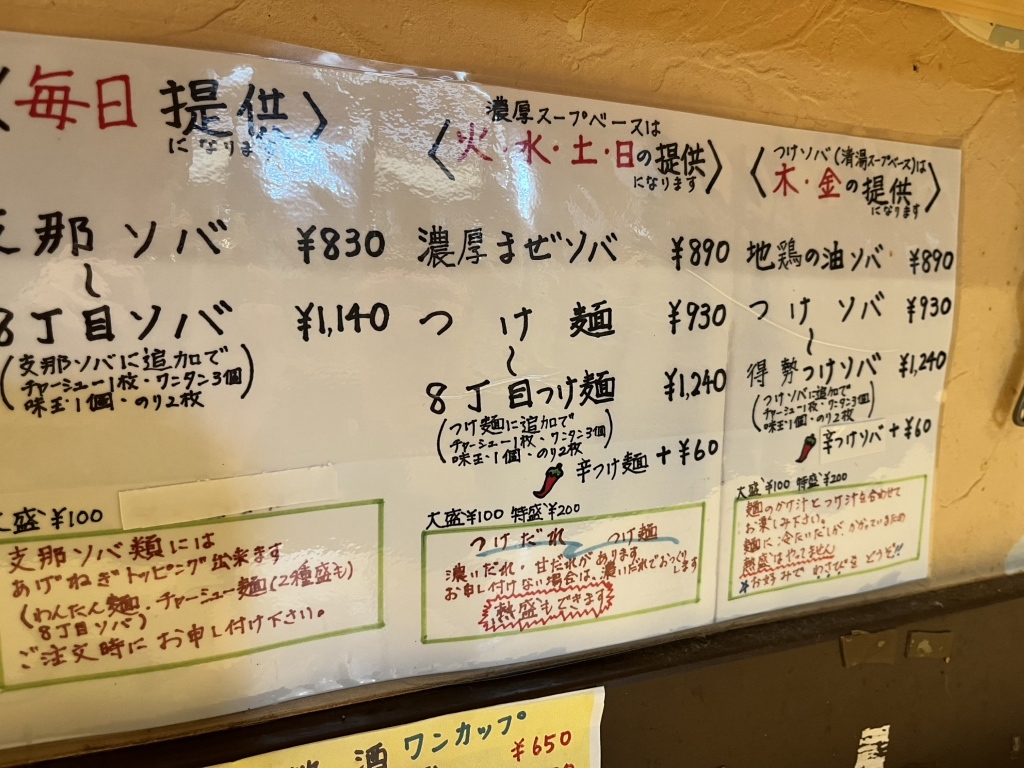 〈毎日 提供〉
になります
支那ソバ ¥830
〜
8丁目ソバ ¥1,140
(支那ソバに追加で
チャーシュー1枚・ワンタン3個
味玉1個・のり2枚)
大盛¥100
支那ソバ類には
あげねぎトッピング出来ます
(わんたん麺・チャーシュー麺(2種盛も)
8丁目ソバ)
ご注文時にお申し付け下さい。
濃厚スープベースは
〈火・水・土・日の提供〉
になります
濃厚まぜソバ ¥890
つけ麺 ¥930
〜
8丁目つけ麺 ¥1,240
(つけ麺に追加で
チャーシュー1枚・ワンタン3個
味玉1個・のり2枚)
辛つけ麺 +¥60
大盛¥100 特盛¥200
つけだれ つけ麺
濃いだれ・甘だれがあります
お申し付けない場合は、濃いだれでおつくりします
熱盛もできます
つけソバ(清湯スープベース)は
〈木・金の提供〉
になります
地鶏の油ソバ ¥890
つけソバ ¥930
〜
得勢つけソバ ¥1,240
(つけソバに追加で
チャーシュー1枚・ワンタン3個
味玉1個・のり2枚)
辛つけソバ +¥60
大盛¥100 特盛¥200
麺のかけ汁とつけ汁を合わせて
お楽しみ下さい。
麺に冷たいだしが、かかっているため
熱盛はやってません
★お好みでわさびをどうぞ!!
酒 ワンカップ
¥650